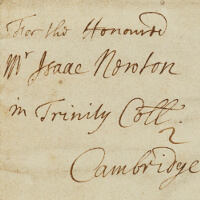 For the Honoured
Mr Isaac Newton
in Trinity Coll
Cambridge